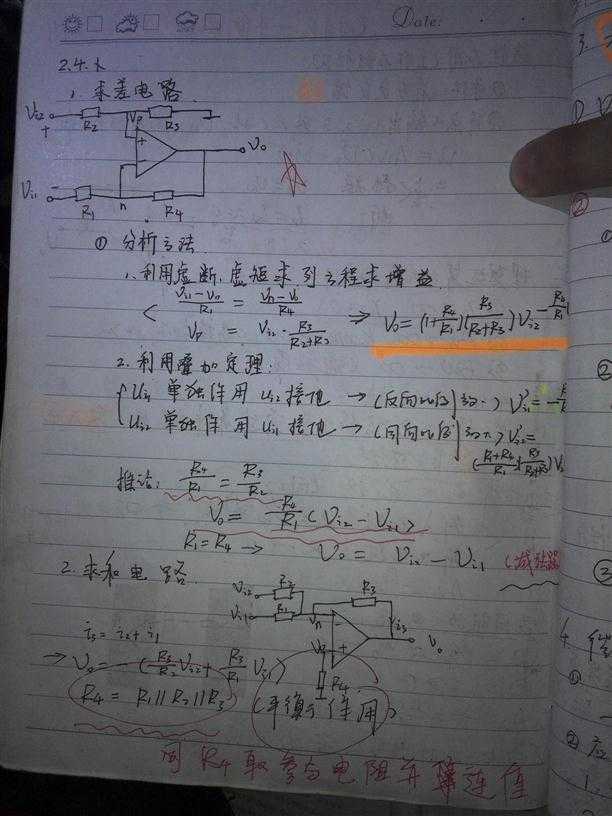 Date:
2.4.1
1. 求差电路
Vi2 R2 Vp R3
+
+
-
Vo
Vi1 R1 n R4
① 分析方法
1. 利用虚断,虚短求列方程求增益
(Vi1-Vn)/R1 = (Vn-Vo)/R4
Vp = Vi2·R3/(R2+R3) ⇒ Vo=(1+R4/R1)(R3/(R2+R3))Vi2 -R4/R1
2. 利用叠加定理:
Ui1 单独作用 Ui2 接地 → (反向
Ui2 单独作用 Ui1 接地 → (同向
(R1+R4)/R1 · R3/(R2+R3)
推论: R4/R1 = R3/R2
Vo= R4/R1 (Vi2-Vi1)
R1=R4 → Vo= Vi2-Vi1 (减法器
2. 求和电路
Vi2 R2 R3
Vi1 R1 Vn i3
Vp - + Vo
R4
i3= i2+i1
→ Vo=-(R3/R2 Vi2+ R3/R1 Vi1)
R4= R1||R2||R3 (平衡 作用)
R4 取 电阻并 连值